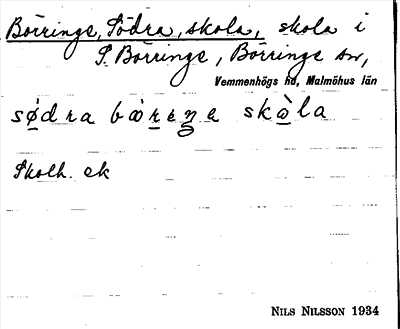 Börringe, Södra, skola, skola i
S. Börringe, Börringe sn,
Vemmenhögs hd, Malmöhus län
sø̀dra bœ̀reŋe skàla
Skolh. ek
NILS NILSSON 1934